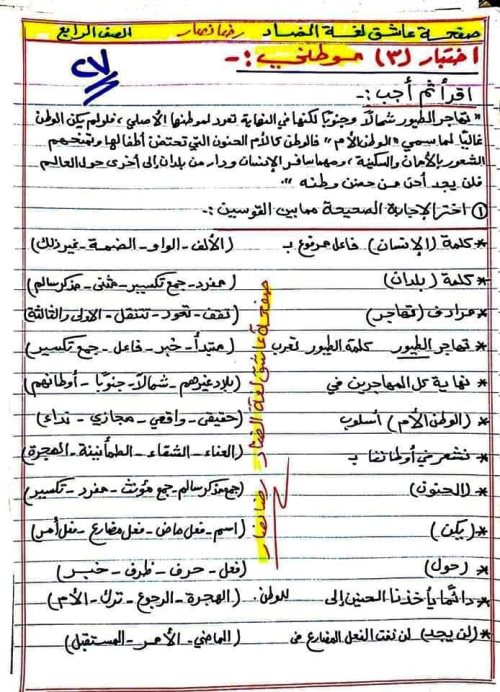 صفحة عاشق لغة الضاد رضا نصار الصف الرابع
اختبار (٣) موطني :-
٢٧
اقرأ ثم أجب :-
" تهاجر الطيور شمالاً وجنوبًا لكنها في النهاية تعود لموطنها الأصلي ، فلو لم يكن الوطن
غاليًا لما سمي "الوطن الأم" فالوطن كالأم الحنون التي تحتضن أطفالها وتمنحهم
الشعور بالأمان والسكينة ، ومهما سافر الإنسان ودار من بلدان إلى أخرى حول العالم
فلن يجد أحن من حضن وطنه ".
١) اختر الإجابة الصحيحة مما بين القوسين :-
* كلمة (الإنسان) فاعل مرفوع بـ (الألف - الواو - الضمة - غير ذلك)
* كلمة (بلدان) (مفرد - جمع تكسير - مثنى - مذكر سالم)
* مرادف (تهاجر) (تقف - تعود - تنتقل - الأولى والثالثة)
* تهاجر الطيور كلمة الطيور تعرب (مبتدأ - خبر - فاعل - جمع تكسير)
* نهاية كل المهاجرين في (بلاد غيرهم - شمالاً - جنوبًا - أوطانهم)
* (الوطن الأم) أسلوب (حقيقي - واقعي - مجازي - نداء)
* نشعر في أوطاننا بـ (العناء - الشقاء - الطمأنينة - الهجرة)
* (الحنون) (جمع مذكر سالم - جمع مؤنث - مفرد - تكسير)
* (يكن) (اسم - فعل ماض - فعل مضارع - فعل أمر)
* (حول) (فعل - حرف - ظرف - خبر)
* دائمًا يأخذنا الحنين إلى للوطن. (الهجرة - الرجوع - ترك - الأم)
* (لن يجد) لن نفت الفعل المضارع في (الماضي - الأمر - المستقبل)
صفحة عاشق لغة الضاد رضا نصار